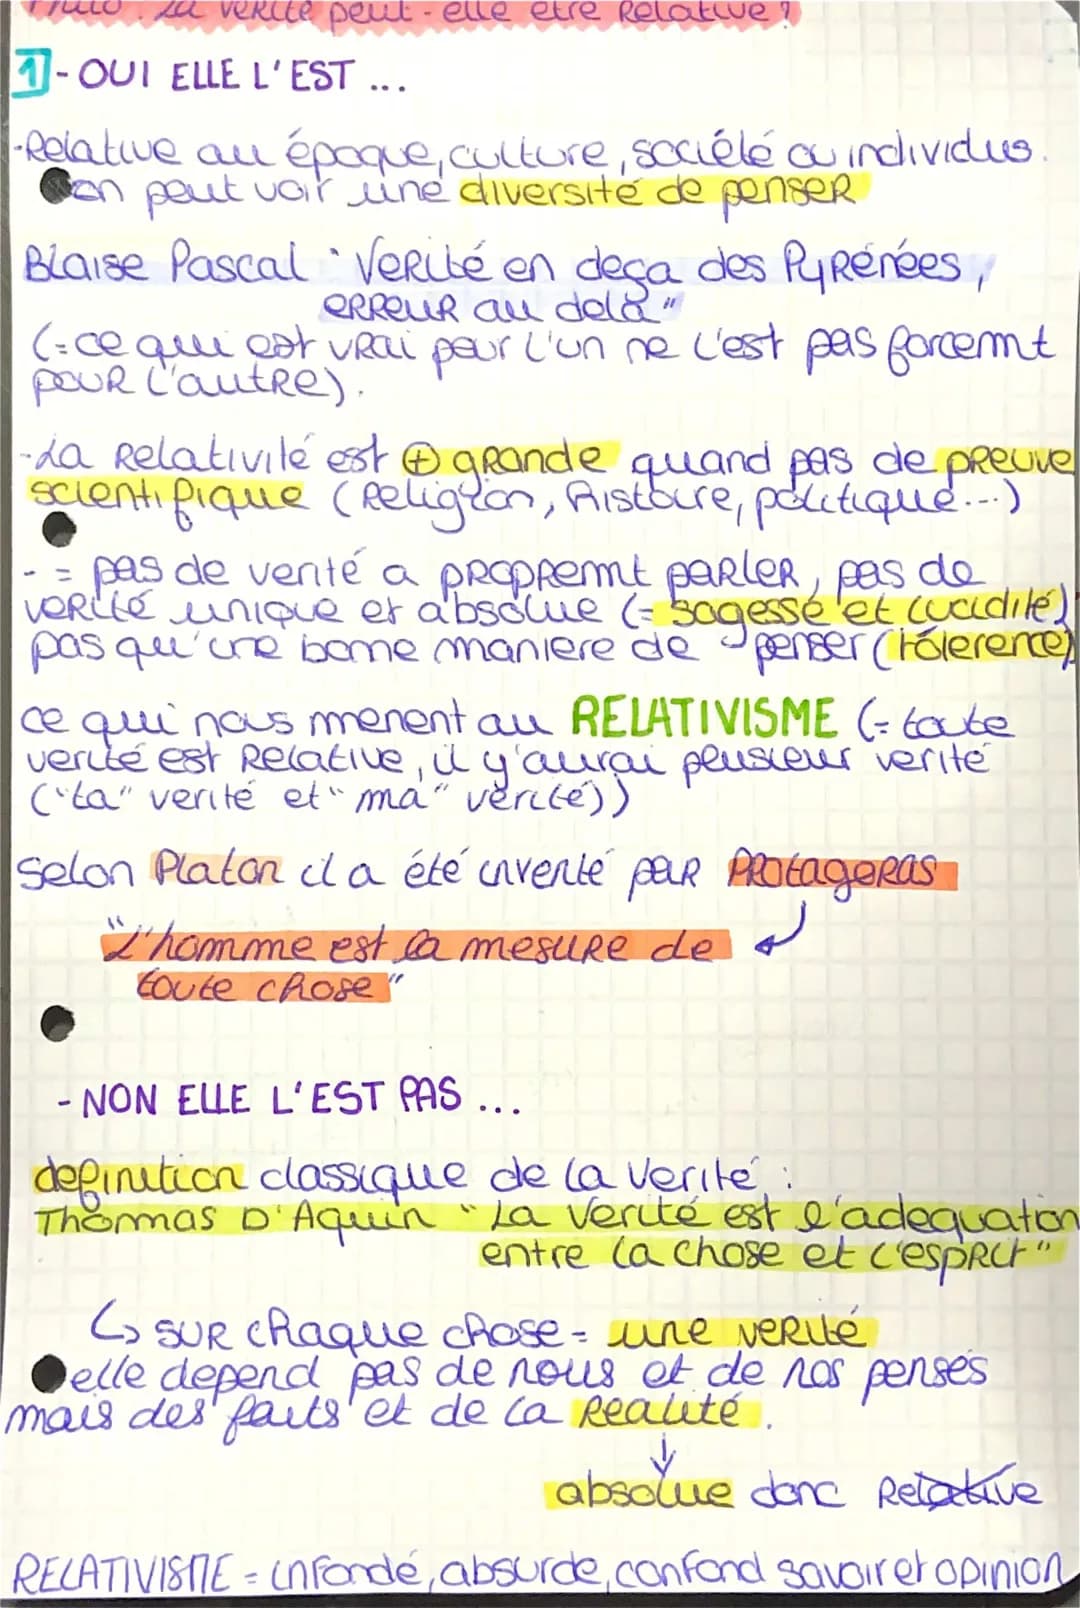 Philo : La verité peut-elle être Relative ?
1 - OUI ELLE L'EST ...
-Relative au époque, culture, société ou individus.
on peut voir une diversité de penser
Blaise Pascal "Verité en deça des Pyrénées,
erreur au delà"
(=ce qui est vrai pour l'un ne l'est pas forcemt
pour l'autre).
-La Relativité est ⊕ grande quand pas de preuve
scientifique (Religion, histoire, politique...)
- = pas de verité a propremt parler, pas de
verité unique et absolue (= sagesse et lucidité)
pas qu'une bonne maniere de penser (tolerence)
ce qui nous menent au RELATIVISME (= toute
verité est Relative, il y'aurai plusieur verité
("ta" verité et "ma" verité))
Selon Platon il a été inventé par Protagoras
"L'homme est la mesure de
toute chose"
- NON ELLE L'EST PAS ...
definition classique de la verité :
Thomas D'Aquin "La Verité est l'adequation
entre la chose et l'esprit"
↳ sur chaque chose = une verité
elle depend pas de nous et de nos penses
mais des faits et de la Realité.
↓
absolue donc Relative
RELATIVISME = infondé, absurde, confond savoir et opinion